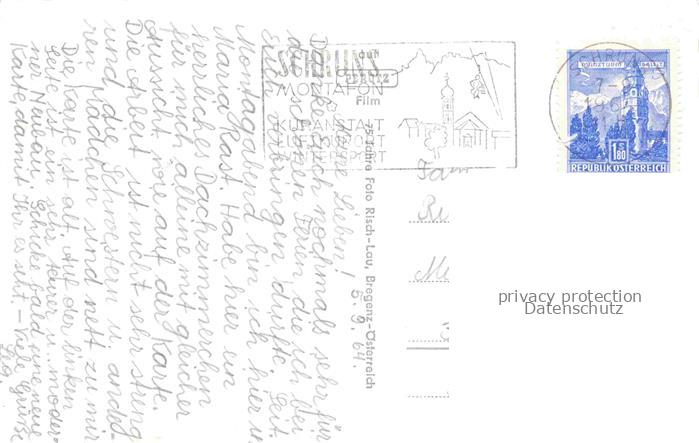 5.9.64.
Meine Lieben!
Danke Euch nochmals sehr für
die schönen Ferien, die ich bei
Euch verbringen durfte. Seit
Montagabend bin ich hier u.
Maria Rast. Habe hier ein
herrliches Dachzimmerchen
für mich alleine mit gleicher
Aussicht wie auf der Karte.
Die Arbeit ist nicht sehr streng
und die Schwestern u. ande-
ren Mädchen sind nett zu mir
Die Karte ist alt. Auf der linken
Seite ist ein sehr teurer u. moder-
ner Neubau. Schicke bald eine neue
Karte, damit Ihr es seht. – Viele Grüße
75 Jahre Foto Risch-Lau, Bregenz-Österreich
SCHRUNS
auf
AGFA
Film
MONTAFON
KURANSTALT
LUFTKURORT
WINTERSPORT
SCHRUNS
MÜNZTURM IN HALL
1.80
S
REPUBLIK ÖSTERREICH
Fam
privacy protection
Datenschutz